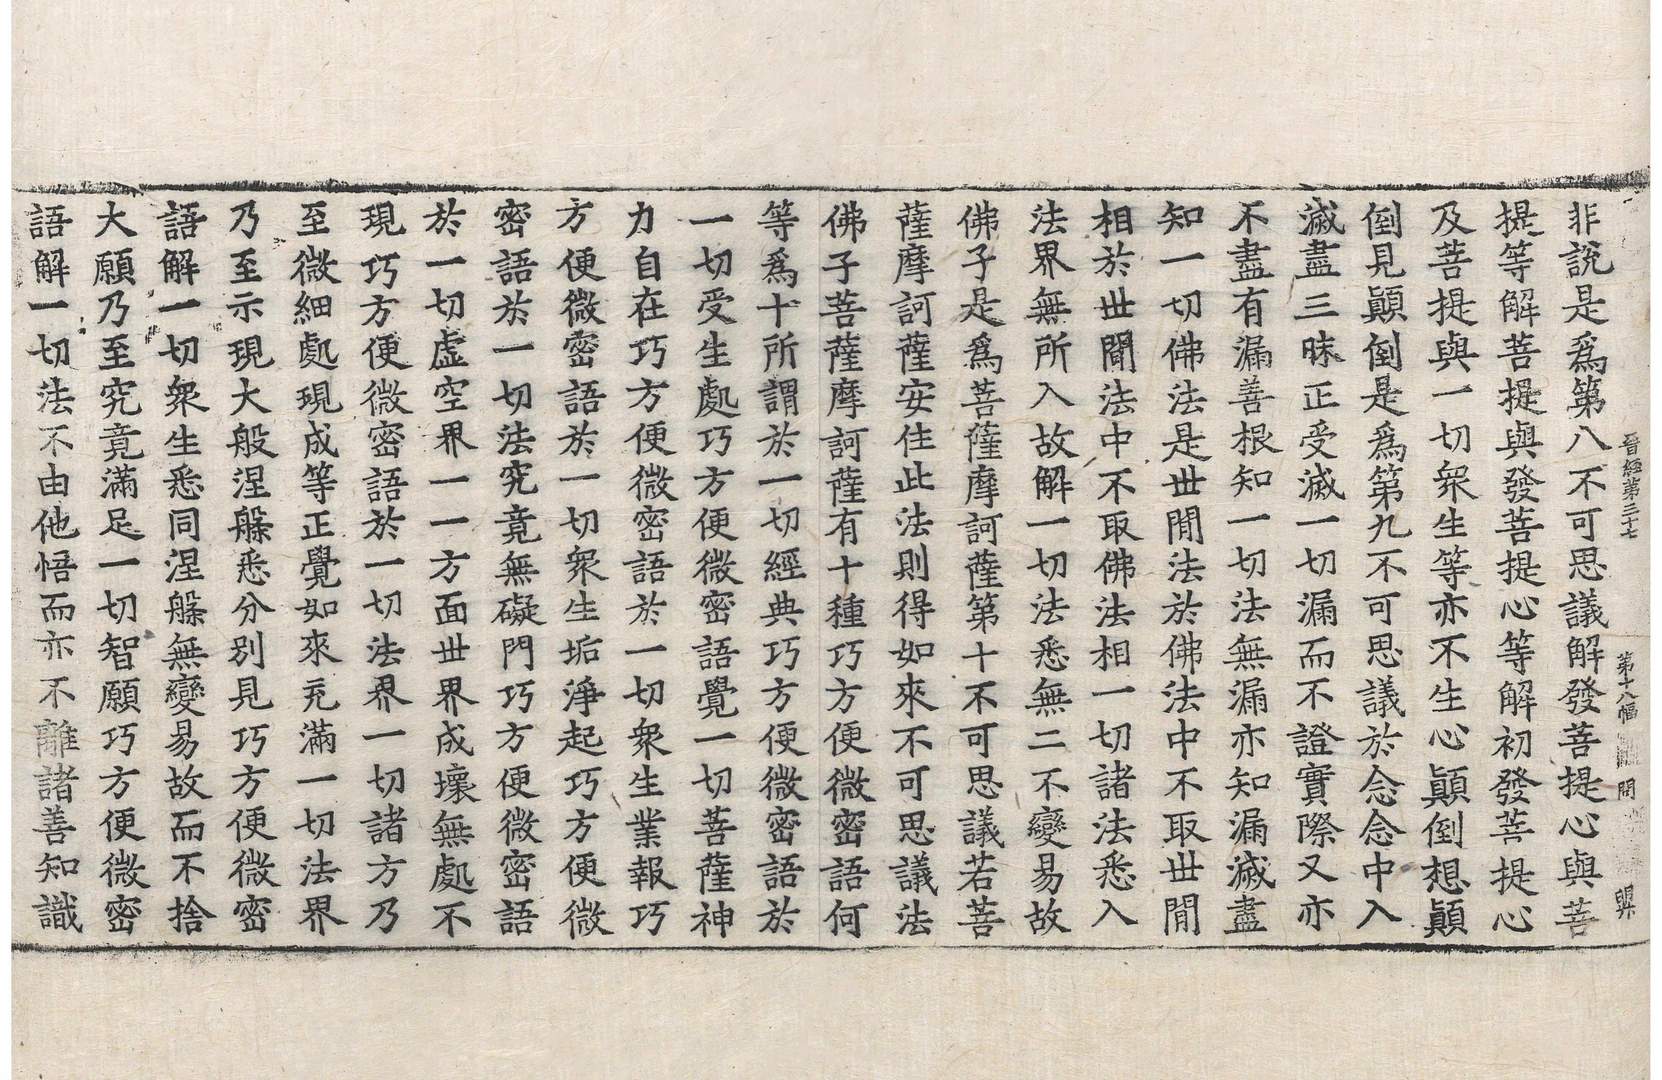 晉經第三十七　第十八幅　問　㒷
非說是爲第八不可思議解發菩提心與菩
提等解菩提與發菩提心等解初發菩提心
及菩提與一切衆生等亦不生心顚倒想顚
倒見顚倒是爲第九不可思議於念念中入
滅盡三昧正受滅一切漏而不證實際又亦
不盡有漏善根知一切法無漏亦知漏滅盡
知一切佛法是世閒法於佛法中不取世閒
相於世閒法中不取佛法相一切諸法悉入
法界無所入故解一切法悉無二不變易故
佛子是爲菩薩摩訶薩第十不可思議若菩
薩摩訶薩安住此法則得如來不可思議法
佛子菩薩摩訶薩有十種巧方便微密語何
等爲十所謂於一切經典巧方便微密語於
一切受生處巧方便微密語覺一切菩薩神
力自在巧方便微密語於一切衆生業報巧
方便微密語於一切衆生垢淨起巧方便微
密語於一切法究竟無礙門巧方便微密語
於一切虛空界一一方面世界成壞無處不
現巧方便微密語於一切法界一切諸方乃
至微細處現成等正覺如來充滿一切法界
乃至示現大般涅槃悉分別見巧方便微密
語解一切衆生悉同涅槃無變易故而不捨
大願乃至究竟滿足一切智願巧方便微密
語解一切法不由他悟而亦不離諸善知識